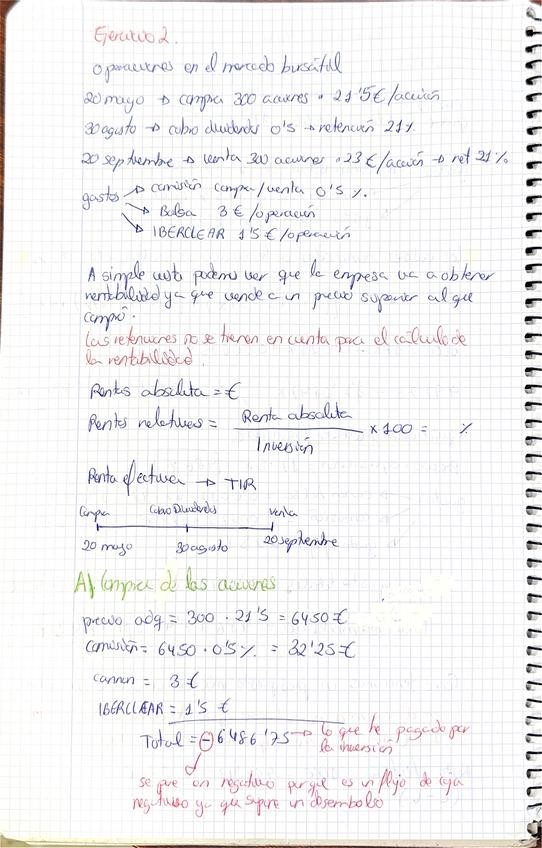 Ejercicio 2.
operaciones en el mercado bursátil
20 mayo → compra 300 acciones · 21'5€/acción
30 agosto → cobro dividendos 0'5 → retención 21%
20 septiembre → venta 300 acciones · 23€/acción → ret 21%
gastos → comisión compra/venta 0'5%.
→ Bolsa 3€/operación
→ IBERCLEAR 1'5€/operación
A simple vista podemos ver que la empresa va a obtener
rentabilidad ya que vende a un precio superior al que
compró.
Las retenciones no se tienen en cuenta para el cálculo de
la rentabilidad.
Rentas absoluta = €
Rentas relativas = Renta absoluta / Inversión × 100 = %
Renta efectiva → TIR
Compra Cobro Dividendos Venta
20 mayo 30 agosto 20 septiembre
A) Compra de las acciones
precio adq = 300 · 21'5 = 6450€
Comisión = 6450 · 0'5% = 32'25€
canon = 3€
IBERCLEAR = 1'5 €
Total = -6486'75 → lo que he pagado por
la inversión
se pone en negativo porque es un flujo de caja
negativo ya que supone un desembolso